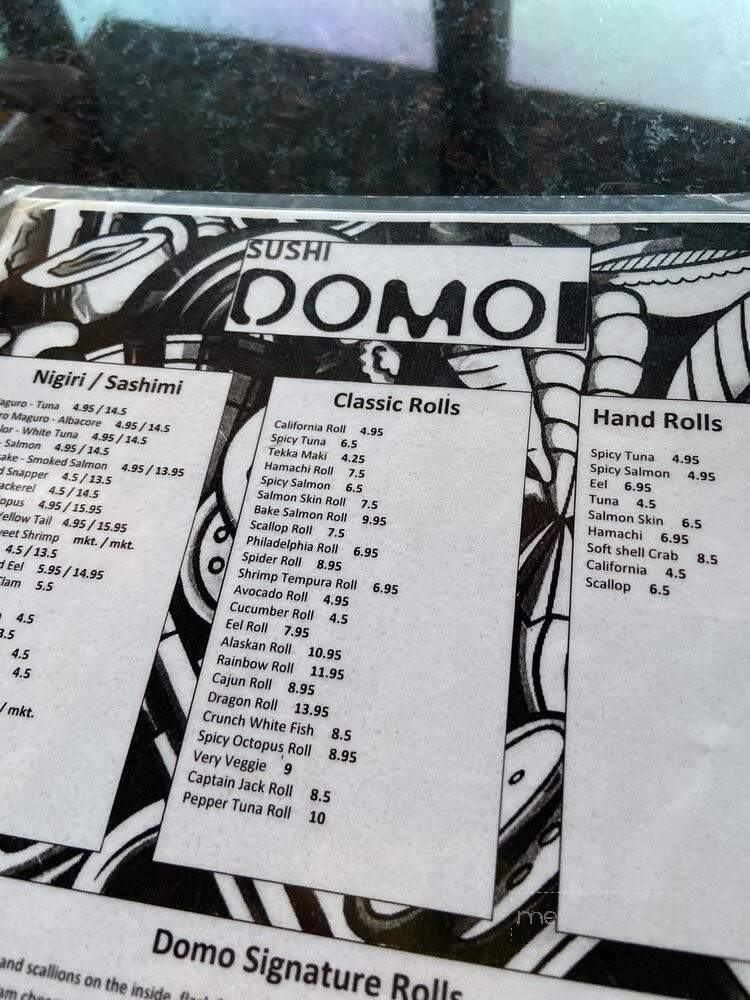 SUSHI
DOMO
Nigiri / Sashimi
- Tuna 4.95 / 14.5
Maguro - Albacore 4.95 / 14.5
- White Tuna 4.95 / 14.5
- Salmon 4.95 / 14.5
- Smoked Salmon 4.95 / 13.95
Snapper 4.5 / 13.5
4.5 / 14.5
4.95 / 15.95
Yellow Tail 4.95 / 15.95
Shrimp mkt. / mkt.
4.5 / 13.5
Eel 5.95 / 14.95
Clam 5.5
4.5
3.5
4.5
4.5
/ mkt.
Classic Rolls
California Roll 4.95
Spicy Tuna 6.5
Tekka Maki 4.25
Hamachi Roll 7.5
Spicy Salmon 6.5
Salmon Skin Roll 7.5
Bake Salmon Roll 9.95
Scallop Roll 7.5
Philadelphia Roll 6.95
Spider Roll 8.95
Shrimp Tempura Roll 6.95
Avocado Roll 4.95
Cucumber Roll 4.5
Eel Roll 7.95
Alaskan Roll 10.95
Rainbow Roll 11.95
Cajun Roll 8.95
Dragon Roll 13.95
Crunch White Fish 8.5
Spicy Octopus Roll 8.95
Very Veggie 9
Captain Jack Roll 8.5
Pepper Tuna Roll 10
Hand Rolls
Spicy Tuna 4.95
Spicy Salmon 4.95
Eel 6.95
Tuna 4.5
Salmon Skin 6.5
Hamachi 6.95
Soft shell Crab 8.5
California 4.5
Scallop 6.5
Domo Signature Rolls
and scallions on the inside,